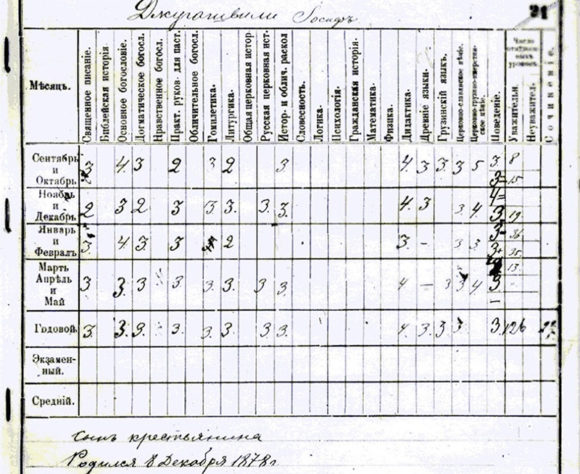 Джугашвили Іосифъ 21
Мѣсяцъ. Священное писаніе. Библейская исторія. Основное богословіе. Догматическое богосл. Нравственное богосл. Практ. руков. для паст. Обличительное богосл. Гомилетика. Литургика. Общая церковная истор. Русская церковная ист. Истор. и облич. раскол Словесность. Логика. Психологія. Гражданская исторія. Математика. Физика. Дидактика. Древніе языки. Грузинскій языкъ. Церковно-славянское пѣніе. Поведеніе. Уважительн. Неуважител. Сочиненіе.
Сентябрь и Октябрь 3 4. 3 2 3 2 3 4. 3 3 3 5 3. 8
3 15
Ноябрь и Декабрь 2 3 2 3 3 3. 3. 3. 4. 3 3 4. 4
3 19
Январь и Февраль 3. 4. 3 3 2 3. – 3 3 3 36
3 35
Мартъ Апрѣль и Май 3 3. 3 3 3. 3. 3 3. 4 – 3 3 4 13
3
Годовой. 3. 3. 3. 3. 3. 3. 3. 3. 4. 3. 3. 3 3. 126
Экзаменный.
Средній.
Сынъ крестьянина
Родился 6 Декабря 1878 г